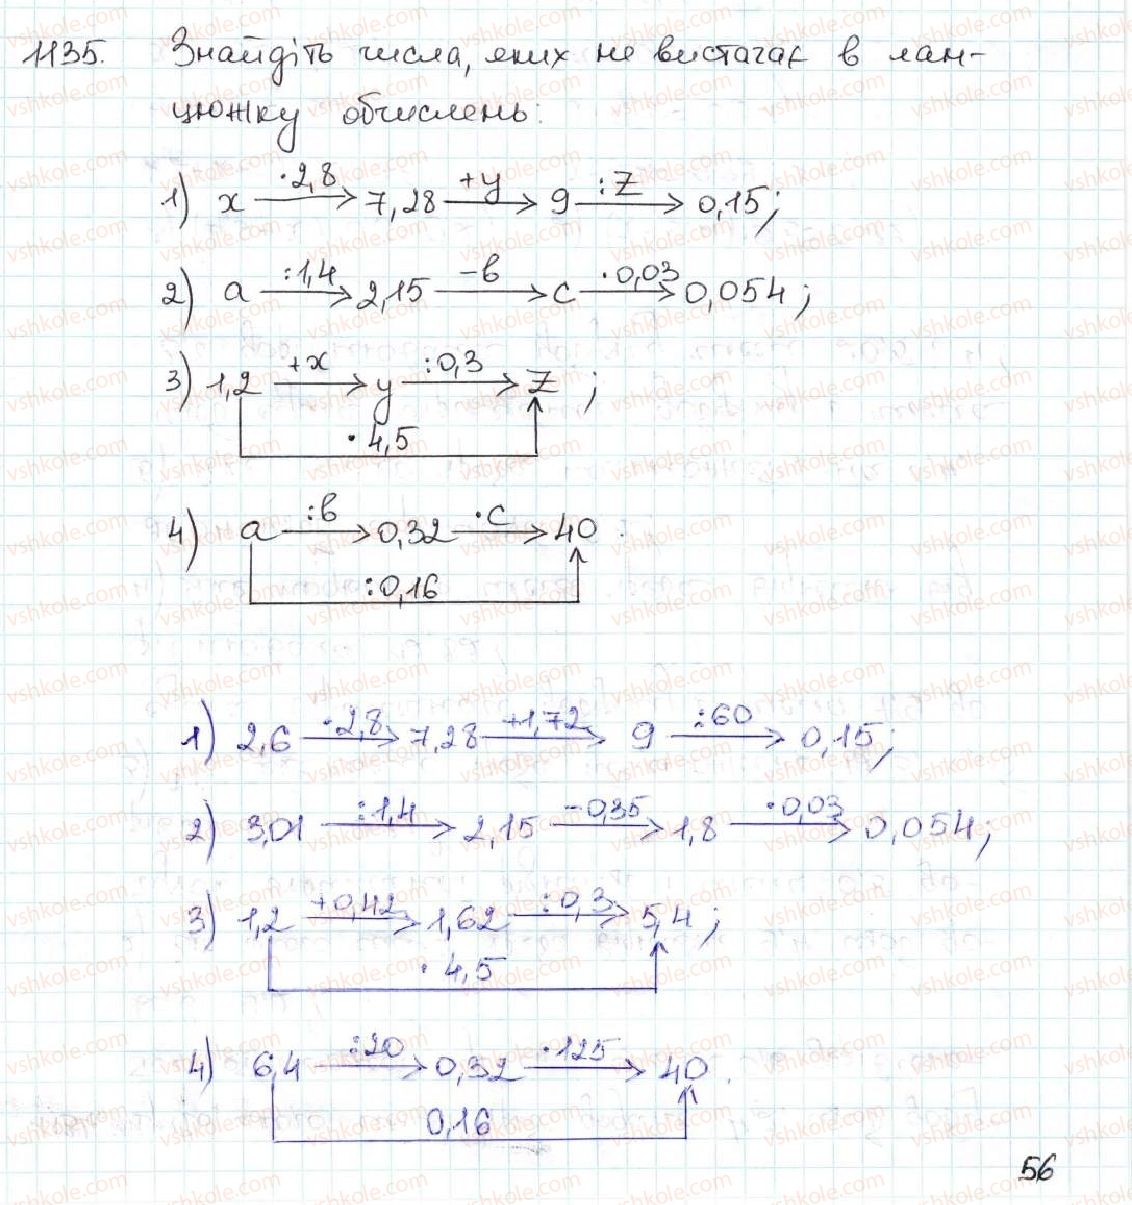 1135. Знайдіть числа, яких не вистачає в лан-
цюжку обчислень:
1) x ·2,8 → 7,28 +y → 9 :Z → 0,15;
2) a :1,4 → 2,15 -в → c ·0,03 → 0,054;
3) 1,2 +x → y :0,3 → Z ;
·4,5
4) a :в → 0,32 ·c → 40.
:0,16
1) 2,6 ·2,8 → 7,28 +1,72 → 9 :60 → 0,15;
2) 3,01 :1,4 → 2,15 -0,35 → 1,8 ·0,03 → 0,054;
3) 1,2 +0,42 → 1,62 :0,3 → 5,4;
·4,5
4) 6,4 :20 → 0,32 ·125 → 40.
0,16
56
vshkole.com